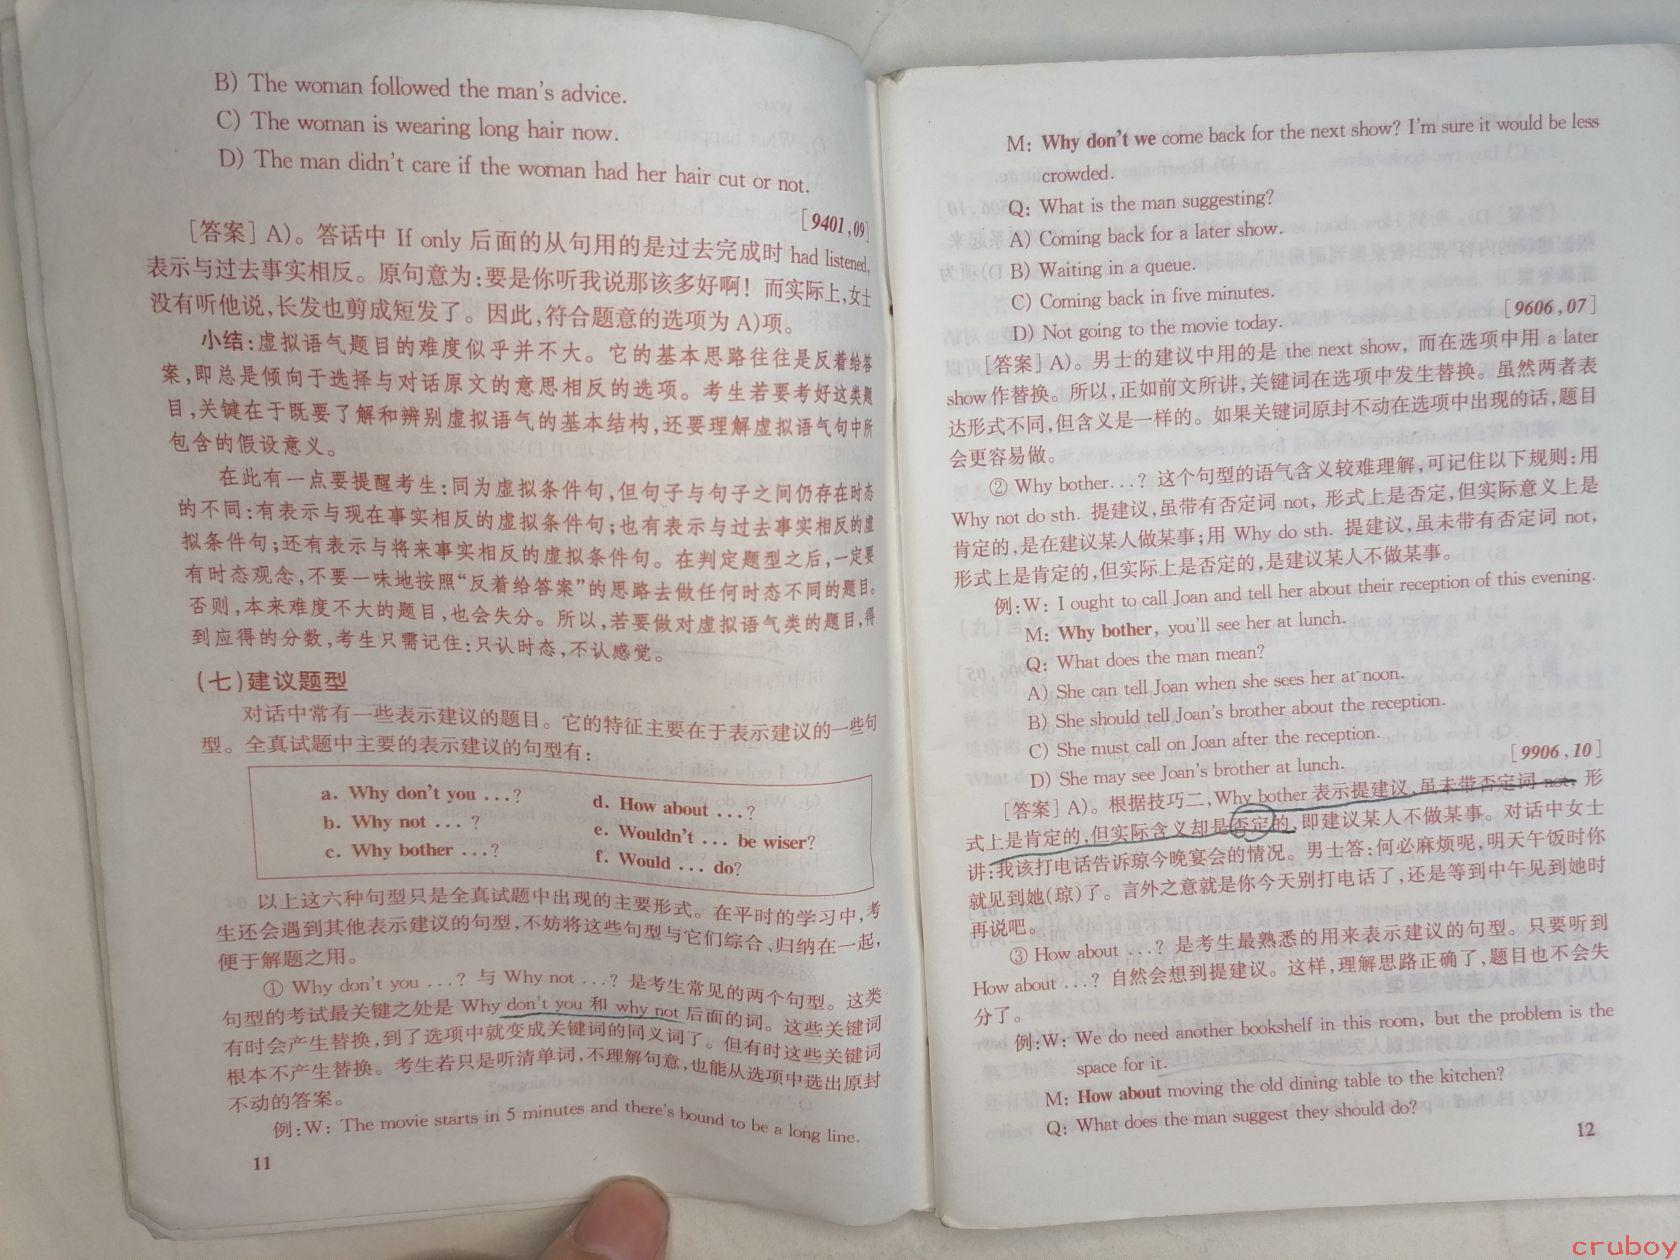 B) The woman followed the man's advice.
C) The woman is wearing long hair now.
D) The man didn't care if the woman had her hair cut or not.
[9401,09]
[答案] A)。答话中 If only 后面的从句用的是过去完成时 had listened,
表示与过去事实相反。原句意为:要是你听我说那该多好啊！而实际上,女士
没有听他说,长发也剪成短发了。因此,符合题意的选项为 A)项。
小结:虚拟语气题目的难度似乎并不大。它的基本思路往往是反着给答
案,即总是倾向于选择与对话原文的意思相反的选项。考生若要考好这类题
目,关键在于既要了解和辨别虚拟语气的基本结构,还要理解虚拟语气句中所
包含的假设意义。
在此有一点要提醒考生:同为虚拟条件句,但句子与句子之间仍存在时态
的不同:有表示与现在事实相反的虚拟条件句;也有表示与过去事实相反的虚
拟条件句;还有表示与将来事实相反的虚拟条件句。在判定题型之后,一定要
有时态观念,不要一味地按照“反着给答案”的思路去做任何时态不同的题目。
否则,本来难度不大的题目,也会失分。所以,若要做对虚拟语气类的题目,得
到应得的分数,考生只需记住:只认时态,不认感觉。
(七)建议题型
对话中常有一些表示建议的题目。它的特征主要在于表示建议的一些句
型。全真试题中主要的表示建议的句型有:
a. Why don't you ...?
b. Why not ... ?
c. Why bother ...?
d. How about ...?
e. Wouldn't ... be wiser?
f. Would ... do?
以上这六种句型只是全真试题中出现的主要形式。在平时的学习中,考
生还会遇到其他表示建议的句型,不妨将这些句型与它们综合、归纳在一起,
便于解题之用。
① Why don't you ...? 与 Why not ...? 是考生常见的两个句型。这类
句型的考试最关键之处是 Why don't you 和 why not 后面的词。这些关键词
有时会产生替换,到了选项中就变成关键词的同义词了。但有时这些关键词
根本不产生替换。考生若只是听清单词,不理解句意,也能从选项中选出原封
不动的答案。
例:W: The movie starts in 5 minutes and there's bound to be a long line.
11
M: Why don't we come back for the next show? I'm sure it would be less
crowded.
Q: What is the man suggesting?
A) Coming back for a later show.
B) Waiting in a queue.
C) Coming back in five minutes.
D) Not going to the movie today.
[9606,07]
[答案] A)。男士的建议中用的是 the next show, 而在选项中用 a later
show 作替换。所以,正如前文所讲,关键词在选项中发生替换。虽然两者表
达形式不同,但含义是一样的。如果关键词原封不动在选项中出现的话,题目
会更容易做。
② Why bother...? 这个句型的语气含义较难理解,可记住以下规则:用
Why not do sth. 提建议,虽带有否定词 not, 形式上是否定,但实际意义上是
肯定的,是在建议某人做某事;用 Why do sth. 提建议,虽未带有否定词 not,
形式上是肯定的,但实际上是否定的,是建议某人不做某事。
例:W: I ought to call Joan and tell her about their reception of this evening.
M: Why bother, you'll see her at lunch.
Q: What does the man mean?
A) She can tell Joan when she sees her at noon.
B) She should tell Joan's brother about the reception.
C) She must call on Joan after the reception.
D) She may see Joan's brother at lunch.
[9906,10]
[答案] A)。根据技巧二,Why bother 表示提建议,虽未带否定词 not, 形
式上是肯定的,但实际含义却是否定的,即建议某人不做某事。对话中女士
讲:我该打电话告诉琼今晚宴会的情况。男士答:何必麻烦呢,明天午饭时你
就见到她(琼)了。言外之意就是你今天别打电话了,还是等到中午见到她时
再说吧。
③ How about ...? 是考生最熟悉的用来表示建议的句型。只要听到
How about ...? 自然会想到提建议。这样,理解思路正确了,题目也不会失
分了。
例:W: We do need another bookshelf in this room, but the problem is the
space for it.
M: How about moving the old dining table to the kitchen?
Q: What does the man suggest they should do?
12
cruboy